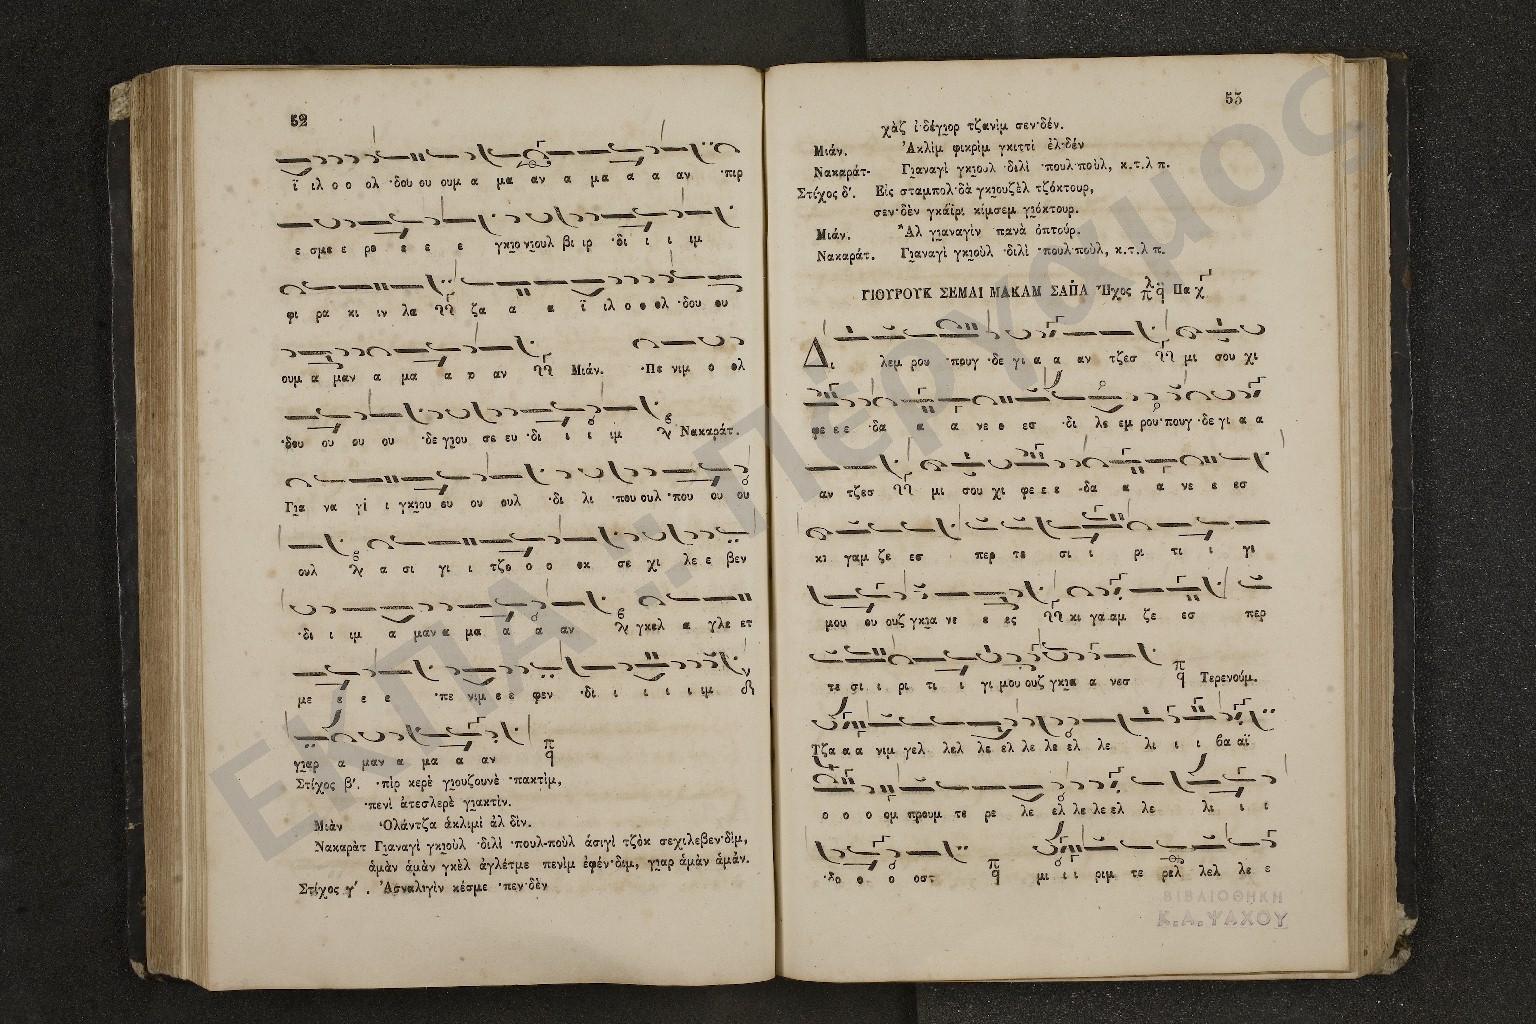 52
ϊ ιλ ο ο ολ ·δου ου ουμ α μα αν α μα α α αν ·πιρ
ε σμε ε ρο ε ε ε γκιο νιουλ βι ιρ ·δι ι ι ιμ
φι ρα κι ιν λα ζα α α ϊ ιλ ο ο ολ ·δου ου
ουμ α μαν α μα α α αν Μιάν. ·Πε νιμ ο ολ
·δου ου ου ου ·δε γιου σε ευ ·δι ι ι ιμ Νακαράτ.
Για να γί ι γκιου ου ου ουλ ·δι λι ·που ουλ ·που ου ου
ουλ α σι γι ι τζο ο ο οκ σε χι λε ε βεν
·δι ι ιμ α μαν α μα α α α αν γκελ α γλε ετ
με ε ε ε ·πε νιμ ε ε φεν ·δι ι ι ι ι ιμ
γιαρ α μαν α μα α αν
Στίχος β΄. ·πὶρ κερὲ γιουζουνὲ ·πακτὶμ,
·πενὶ ἀτεσλερὲ γιακτὶν.
Μιὰν Ὀλάντζα ἀκλιμὶ ἀλ δὶν.
Νακαρὰτ Γιαναγὶ γκιοὺλ ·διλὶ ·πουλ-ποὺλ ἀσιγὶ τζὸκ σεχιλεβεν·δὶμ,
ἀμὰν ἀμὰν γκὲλ ἀγλέτμε πενὶμ ἐφέν·διμ, γιαρ ἀμὰν ἀμάν.
Στίχος γ΄. Ἀσναλιγὶν κέσμε ·πεν·δὲν
53
χὰζ ἐ·δέγιορ τζανὶμ σεν·δέν.
Μιάν. Ἀκλὶμ φικρὶμ γκιττὶ ἐλ·δέν
Νακαράτ- Γιαναγὶ γκιοὺλ ·διλὶ ·πουλ·ποὺλ, κ.τ.λ π.
Στίχος δ΄. Εἰς σταμπολ·δὰ γκιουζὲλ τζόκτουρ,
σεν·δὲν γκάϊρι κίμσεμ γιόκτουρ.
Μιάν. Ἂλ γιαναγὶν πανὰ ὀπτούρ.
Νακαράτ. Γιαναγὶ γκιοὺλ ·διλὶ ·πουλ·ποὺλ, κ.τ.λ π.
ΓΙΟΥΡΟΥΚ ΣΕΜΑΙ ΜΑΚΑΜ ΣΑΠΑ Ἦχος Πα
Δι λεμ ρου ·πουγ ·δε γι α α αν τζεσ μι σου χι
φε ε ε ·δα α α νε ε εσ ·δι λε εμ ρου·πουγ ·δε γι α α
αν τζεσ μι σου χι φε ε ε ·δα α α νε ε εσ
κι γαμ ζε εσ περ τε σι ι ρι τι ι γι
μου ου ουζ γκια νε ε ες κι γα αμ ζε εσ περ
τε σι ι ρι τι ι γι μου ουζ γκια α νεσ Τερενούμ.
Τζα α α νιμ γελ λελ λε ελ λε λε ελ λε λι ι ι βα αϊ
ο ο ο ομ προυμ τε ρε λε ελ λε λε ελ λε λι ι ι
·δο ο ο οστ μι ι ι ριμ τε ρελ λελ λε ε
ΒΙΒΛΙΟΘΗΚΗ
Κ.Α.ΨΑΧΟΥ
ΕΚΠΑ: Πέργαμος